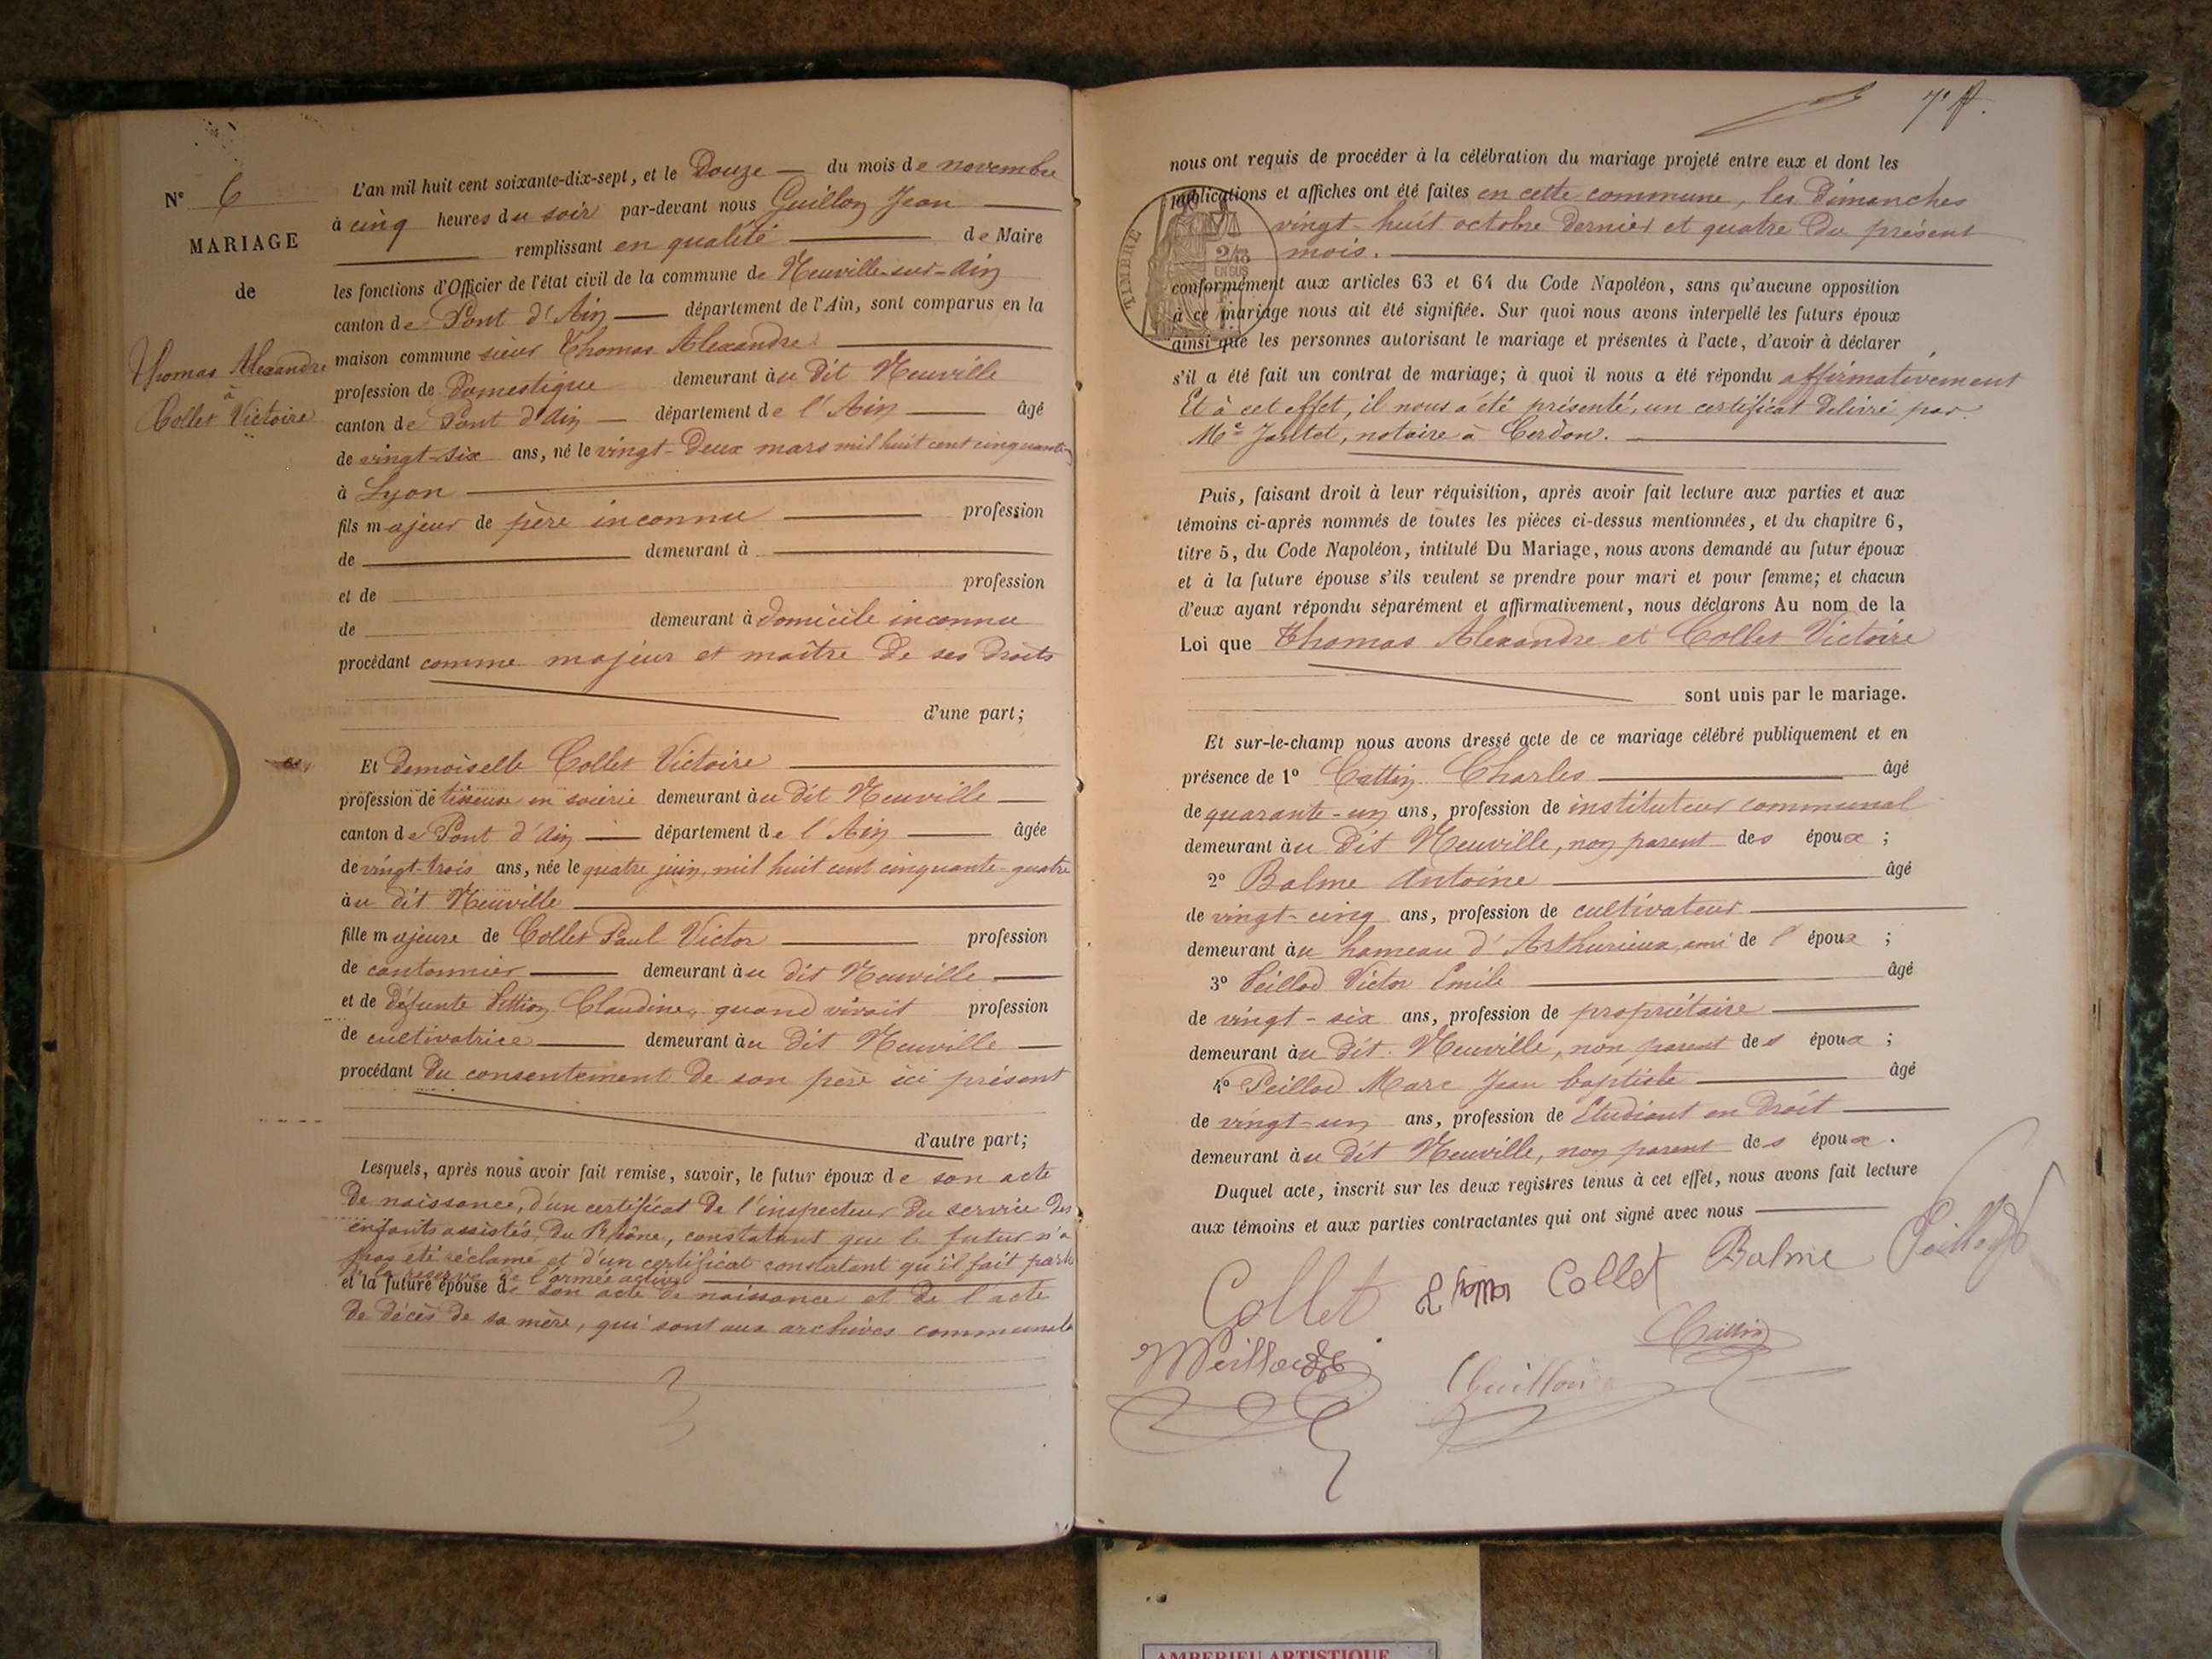 N° 6
MARIAGE
de
Thomas Alexandre
à
Collet Victoire
L'an mil huit cent soixante-dix-sept, et le Douze du mois de novembre
à cinq heures du soir par-devant nous Guillon Jean
remplissant en qualité de Maire
les fonctions d'Officier de l'état civil de la commune de Neuville-sur-Ain
canton de Pont d'Ain département de l'Ain, sont comparus en la
maison commune sieur Thomas Alexandre
profession de Domestique demeurant àu dit Neuville
canton de Pont d'Ain département de l'Ain âgé
de vingt-six ans, né le vingt-Deux mars mil huit cent cinquante
à Lyon
fils majeur de père inconnu profession
de demeurant à
et de profession
de demeurant à Domicile inconnu
procédant comme majeur et maître de ses droits
d'une part;
Et Demoiselle Collet Victoire
profession de tisseuse en soierie demeurant àu dit Neuville
canton de Pont d'Ain département de l'Ain âgée
de vingt-trois ans, née le quatre juin mil huit cent cinquante-quatre
àu dit Neuville
fille majeure de Collet Paul Victor profession
de cantonnier demeurant àu dit Neuville
et de défunte Claudine, quand vivait profession
de cultivatrice demeurant àu dit Neuville
procédant du consentement de son père ici présent
d'autre part;
Lesquels, après nous avoir fait remise, savoir, le futur époux de son acte
de naissance, d'un certificat de l'inspecteur du service des
enfants assistés du Rhône, constatant que le futur n'a
pas été réclamé et d'un certificat constatant qu'il fait partie
de la réserve de l'armée active
et la future épouse de son acte de naissance et de l'acte
de décès de sa mère, qui sont aux archives communales
nous ont requis de procéder à la célébration du mariage projeté entre eux et dont les
publications et affiches ont été faites en cette commune, les Dimanches
vingt-huit octobre dernier et quatre du présent
mois.
TIMBRE
2/10
EN SUS
conformément aux articles 63 et 64 du Code Napoléon, sans qu'aucune opposition
à ce mariage nous ait été signifiée. Sur quoi nous avons interpellé les futurs époux
ainsi que les personnes autorisant le mariage et présentes à l'acte, d'avoir à déclarer
s'il a été fait un contrat de mariage; à quoi il nous a été répondu affirmativement
Et à cet effet, il nous a été présenté, un certificat délivré par
Me Jantet, notaire à Cerdon.
Puis, faisant droit à leur réquisition, après avoir fait lecture aux parties et aux
témoins ci-après nommés de toutes les pièces ci-dessus mentionnées, et du chapitre 6,
titre 5, du Code Napoléon, intitulé Du Mariage, nous avons demandé au futur époux
et à la future épouse s'ils veulent se prendre pour mari et pour femme; et chacun
d'eux ayant répondu séparément et affirmativement, nous déclarons Au nom de la
Loi que Thomas Alexandre et Collet Victoire
sont unis par le mariage.
Et sur-le-champ nous avons dressé acte de ce mariage célébré publiquement et en
présence de 1° Cattin Charles âgé
de quarante-un ans, profession de instituteur communal
demeurant àu dit Neuville, non parent des époux ;
2° Balme Antoine âgé
de vingt-cinq ans, profession de cultivateur
demeurant àu hameau d'Arthurieux, ami de l'époux ;
3° Peillod Victor Emile âgé
de vingt-six ans, profession de propriétaire
demeurant àu dit Neuville, non parent des époux ;
4° Peillod Marc Jean baptiste âgé
de vingt-un ans, profession de Etudiant en Droit
demeurant àu dit Neuville, non parent des époux.
Duquel acte, inscrit sur les deux registres tenus à cet effet, nous avons fait lecture
aux témoins et aux parties contractantes qui ont signé avec nous
Collet Thomas Collet Balme Peillod
Peillod Cattin
Guillon
AMBERIEU ARTISTIQUE